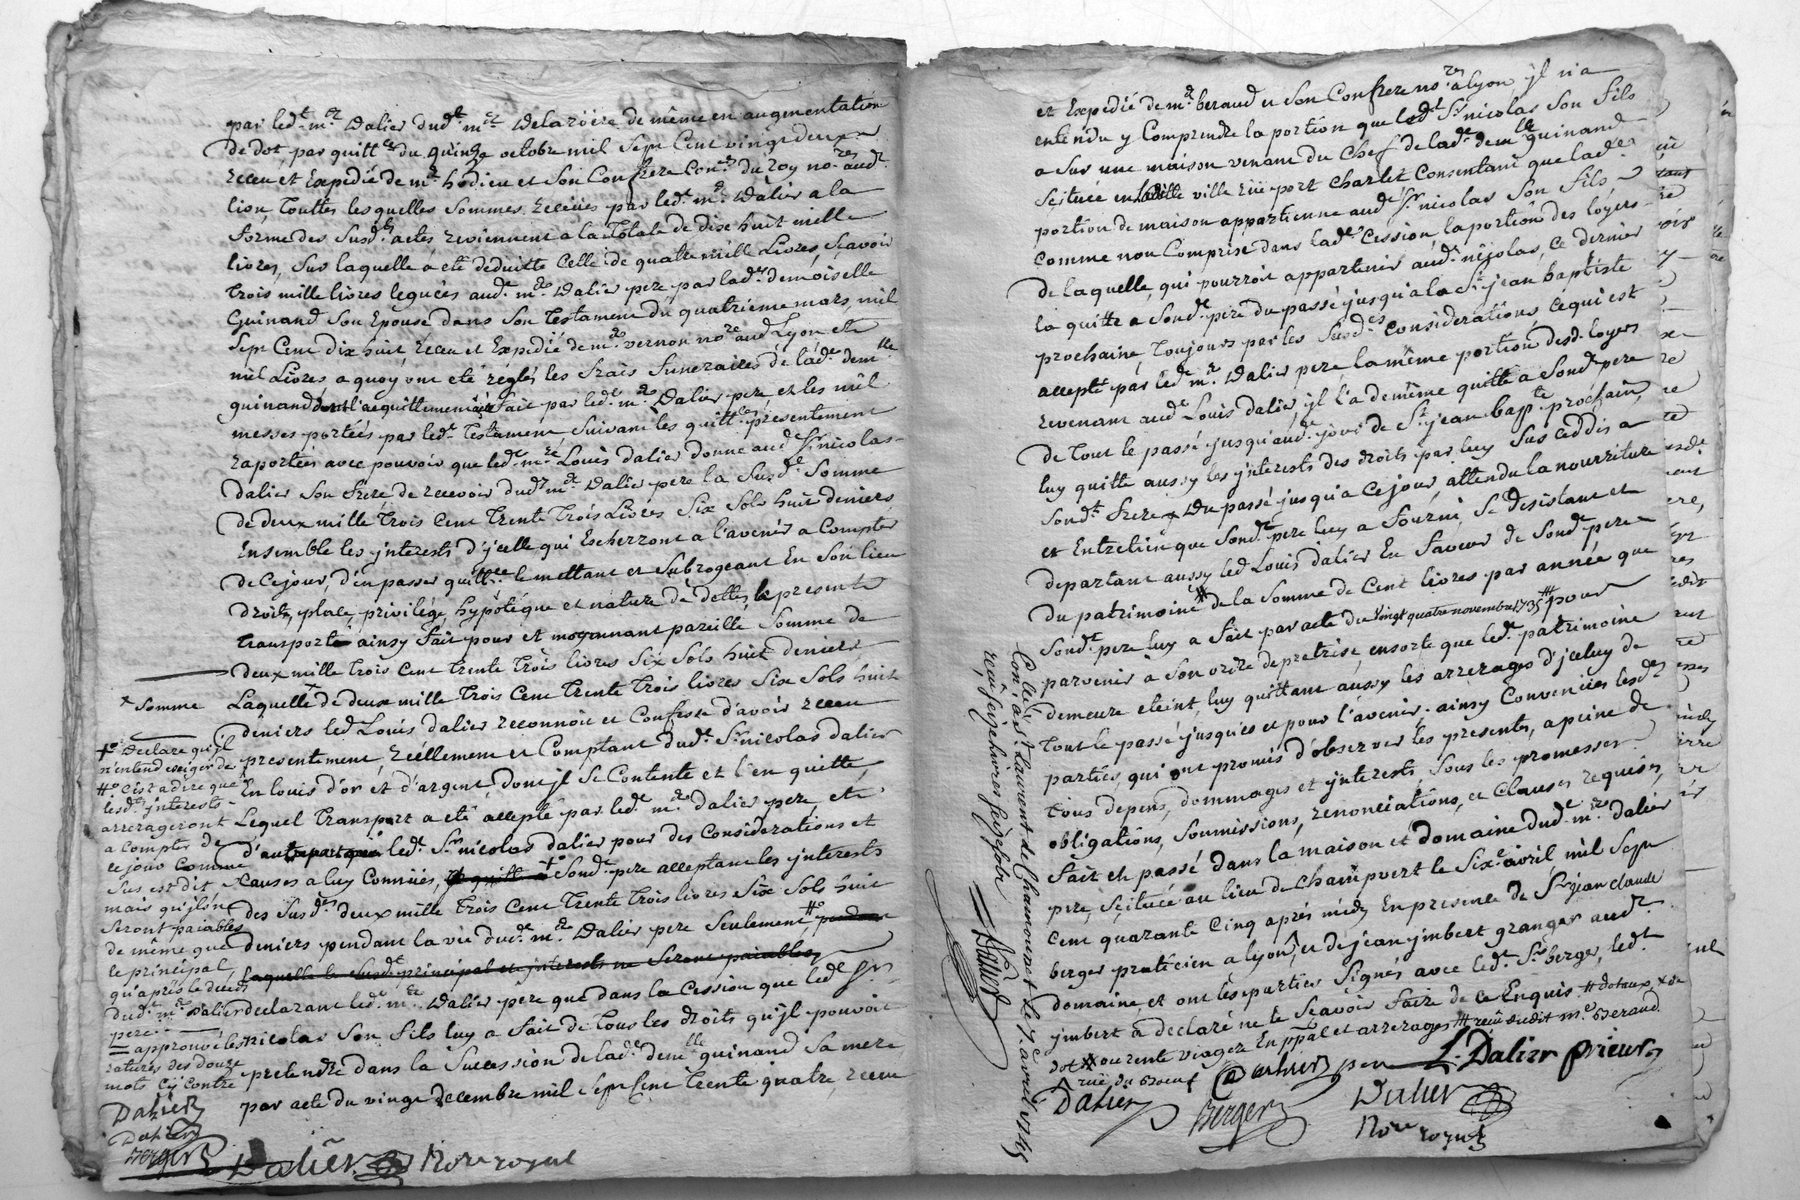 par led.t m.re Dalier dud.t m.re Delaroüere de même en augmentation
de dot par quitt.ce du quinze octobre mil Sept Cent vingt deux
receu et Expedié de m.e hodieu et Son Confrere Con.ers du roy no.res aud.t
lion, Touttes lesquelles Sommes receües par led.t m.re Dalier a la
forme des Susd.ts actes reviennent a la Totale de dixe huit mille
livres, Sur laquelle a été deduitte Celle de quatre mille Livres, Scavoir
Trois mille livres leguées aud.t m.re Dalier pere par lad.e demoiselle
Guinand Son Epouse dans Son Testament du quatrieme mars, mil
Sept Cent dix huit, receu et Expedié de m.e vernon no.re aud. Lyon et
mil Livres, a quoy ont eté réglés les frais funeraires de lad.e dem.lle
guinand dont l'acquittement a été fait par led.t m.re Dalier pere et les mil
messes portées par led.t Testament, Suivant les quitt.ces presentement
raportées avec pouvoir que led.t m.re Louis dalier donne aud.t Sr nicolas
dalier Son frere de recevoir dud.t m.re Dalier pere la Susd.e Somme
de deux mille Trois Cent Trente Trois Livres Six Sols huit deniers
Ensemble les jnterests d'jcelle qui Escherront a l'avenir a Compter
de Cejour, d'en passer quitt.ce le mettant et Subrogeant En Son lieu
droits, place, privilége, hypotéque et nature de dettes le present
Transporte ainsy fait pour et moyennant pareille Somme de
deux mille Trois Cent Trente Trois livres Six Sols huit deniers
Laquelle + de deux mille Trois Cent Trente Trois livres Six Sols huit
deniers led. Louis dalier reconnoit et Confesse d'avoir receu
presentement, reellement et Comptant dud.t Sr nicolas dalier
En louis d'or et d'argent dont jl Se Contente et l'en quitte,
Lequel Transport a eté accepté par led.t m.re dalier pere, et
led.t Sr nicolas dalier pour des Considerations et
Causes a luy Connües, Sond.t pere acceptant les jnterests
des Susd.es deux mille Trois Cent Trente Trois livres Six Sols huit
deniers pendant la vie dud.t m.re Dalier pere Seulement,
laquelle le Susd.t principal et jnterests ne Seront paiables
declarant led.t m.re Dalier pere que dans la Cession que led.t Sr
nicolas Son fils luy a fait de Tous les droits qu'jl pouvoit
pretendre dans la Succession de lad.e dem.lle guinand Sa mere
par acte du vingt decembre mil Sept Cent Trente quatre, receu
+ Somme
+o Declare qu'jl
n'entend exiger de
#o C'est a dire que
lesd.ts jnterests
arrerageront
a compter de
ce jour Comme
Sus est dit
mais qu'jls ne
Seront paiables
de même que
le principal
qu'aprés le deces
dud.t m.re Dalier
pere
approuvé les
ratures des douze
mots cy Contre
Dalier
Dalier
Berger
Dalier Not.re royal
et Expedié de m.e beraud et Son Confrere no.res a lyon jl n'a
entendu y Comprendre la portion que led.t Sr nicolas Son fils
a Sur une maison venant du Chef de lad.e dem.lle guinand
Scituée en ladite ville rüe port Charlet Consentant que lad.e
portion de maison appartienne aud.t Sr nicolas Son fils,
comme non Comprise dans lad.e Cession, la portion des loyers
de laquelle, qui pourroit appartenir aud.t nicolas, ce dernier
la quitte a Sond.t pere du passé jusqu'a la St jean baptiste
prochaine, Toujours par les Susd.es considerations, ce qui est
accepté par led.t m.re Dalier pere la même portion desd. loyers
revenant aud.t Louis dalier, jl l'a demême quitté a Sond.t pere
de Tout le passé jusqu'aud.t jour de St jean bap.te prochain,
luy quitte aussy les jnterests des droits par luy Sus ceddés a
Sond.t frere Du passé jusqu'a ce jour, attendu la nourriture
et Entretien que Sond.t pere luy a fourni, Se desistant et
departant aussy led. Louis dalier En faveur de Sond.t pere
du patrimoine # de la Somme de Cent livres par année que
Sond.t pere luy a fait par acte du vingt quatre novembre 1735 ## pour
parvenir à Son ordre de pretrise, ensorte que led.t patrimoine
demeure eteint, luy quittant aussy les arrerages d'jceluy de
Tout le passé jusques et pour l'avenir, ainsy Convenües lesd.es
parties, qui ont promis d'observer les presentes, a peine de
Tous depens, dommages et jnterests, Sous les promesses
obligations, Soumissions, renonciations, et Clauses requises,
fait et passé dans la maison et domaine dud.t m.re dalier
pere, Scituée au lieu de champvert le Six.e avril mil Sept
Cent quarante Cinq aprés midy En presence de Sr jean claude
berger praticien a lyon, et de jean jmbert granger aud.t
domaine, et ont les parties Signés avec led.t Sr berger, led.t
jmbert à declaré ne le Scavoir faire de ce Enquis # dotaux, + de
dot # ou rente viagere En pp.al et arrerages ## receu dudit m.e Beraud
rüe du Boeuf
Dalier
Berger
Dalier pere
L. Dalier prieur
Dalier
No.re royal
Con.lé a St Laurent de Chamounet Le 7.e avril 1745
receu Seize livres Seize Sols
Dalier